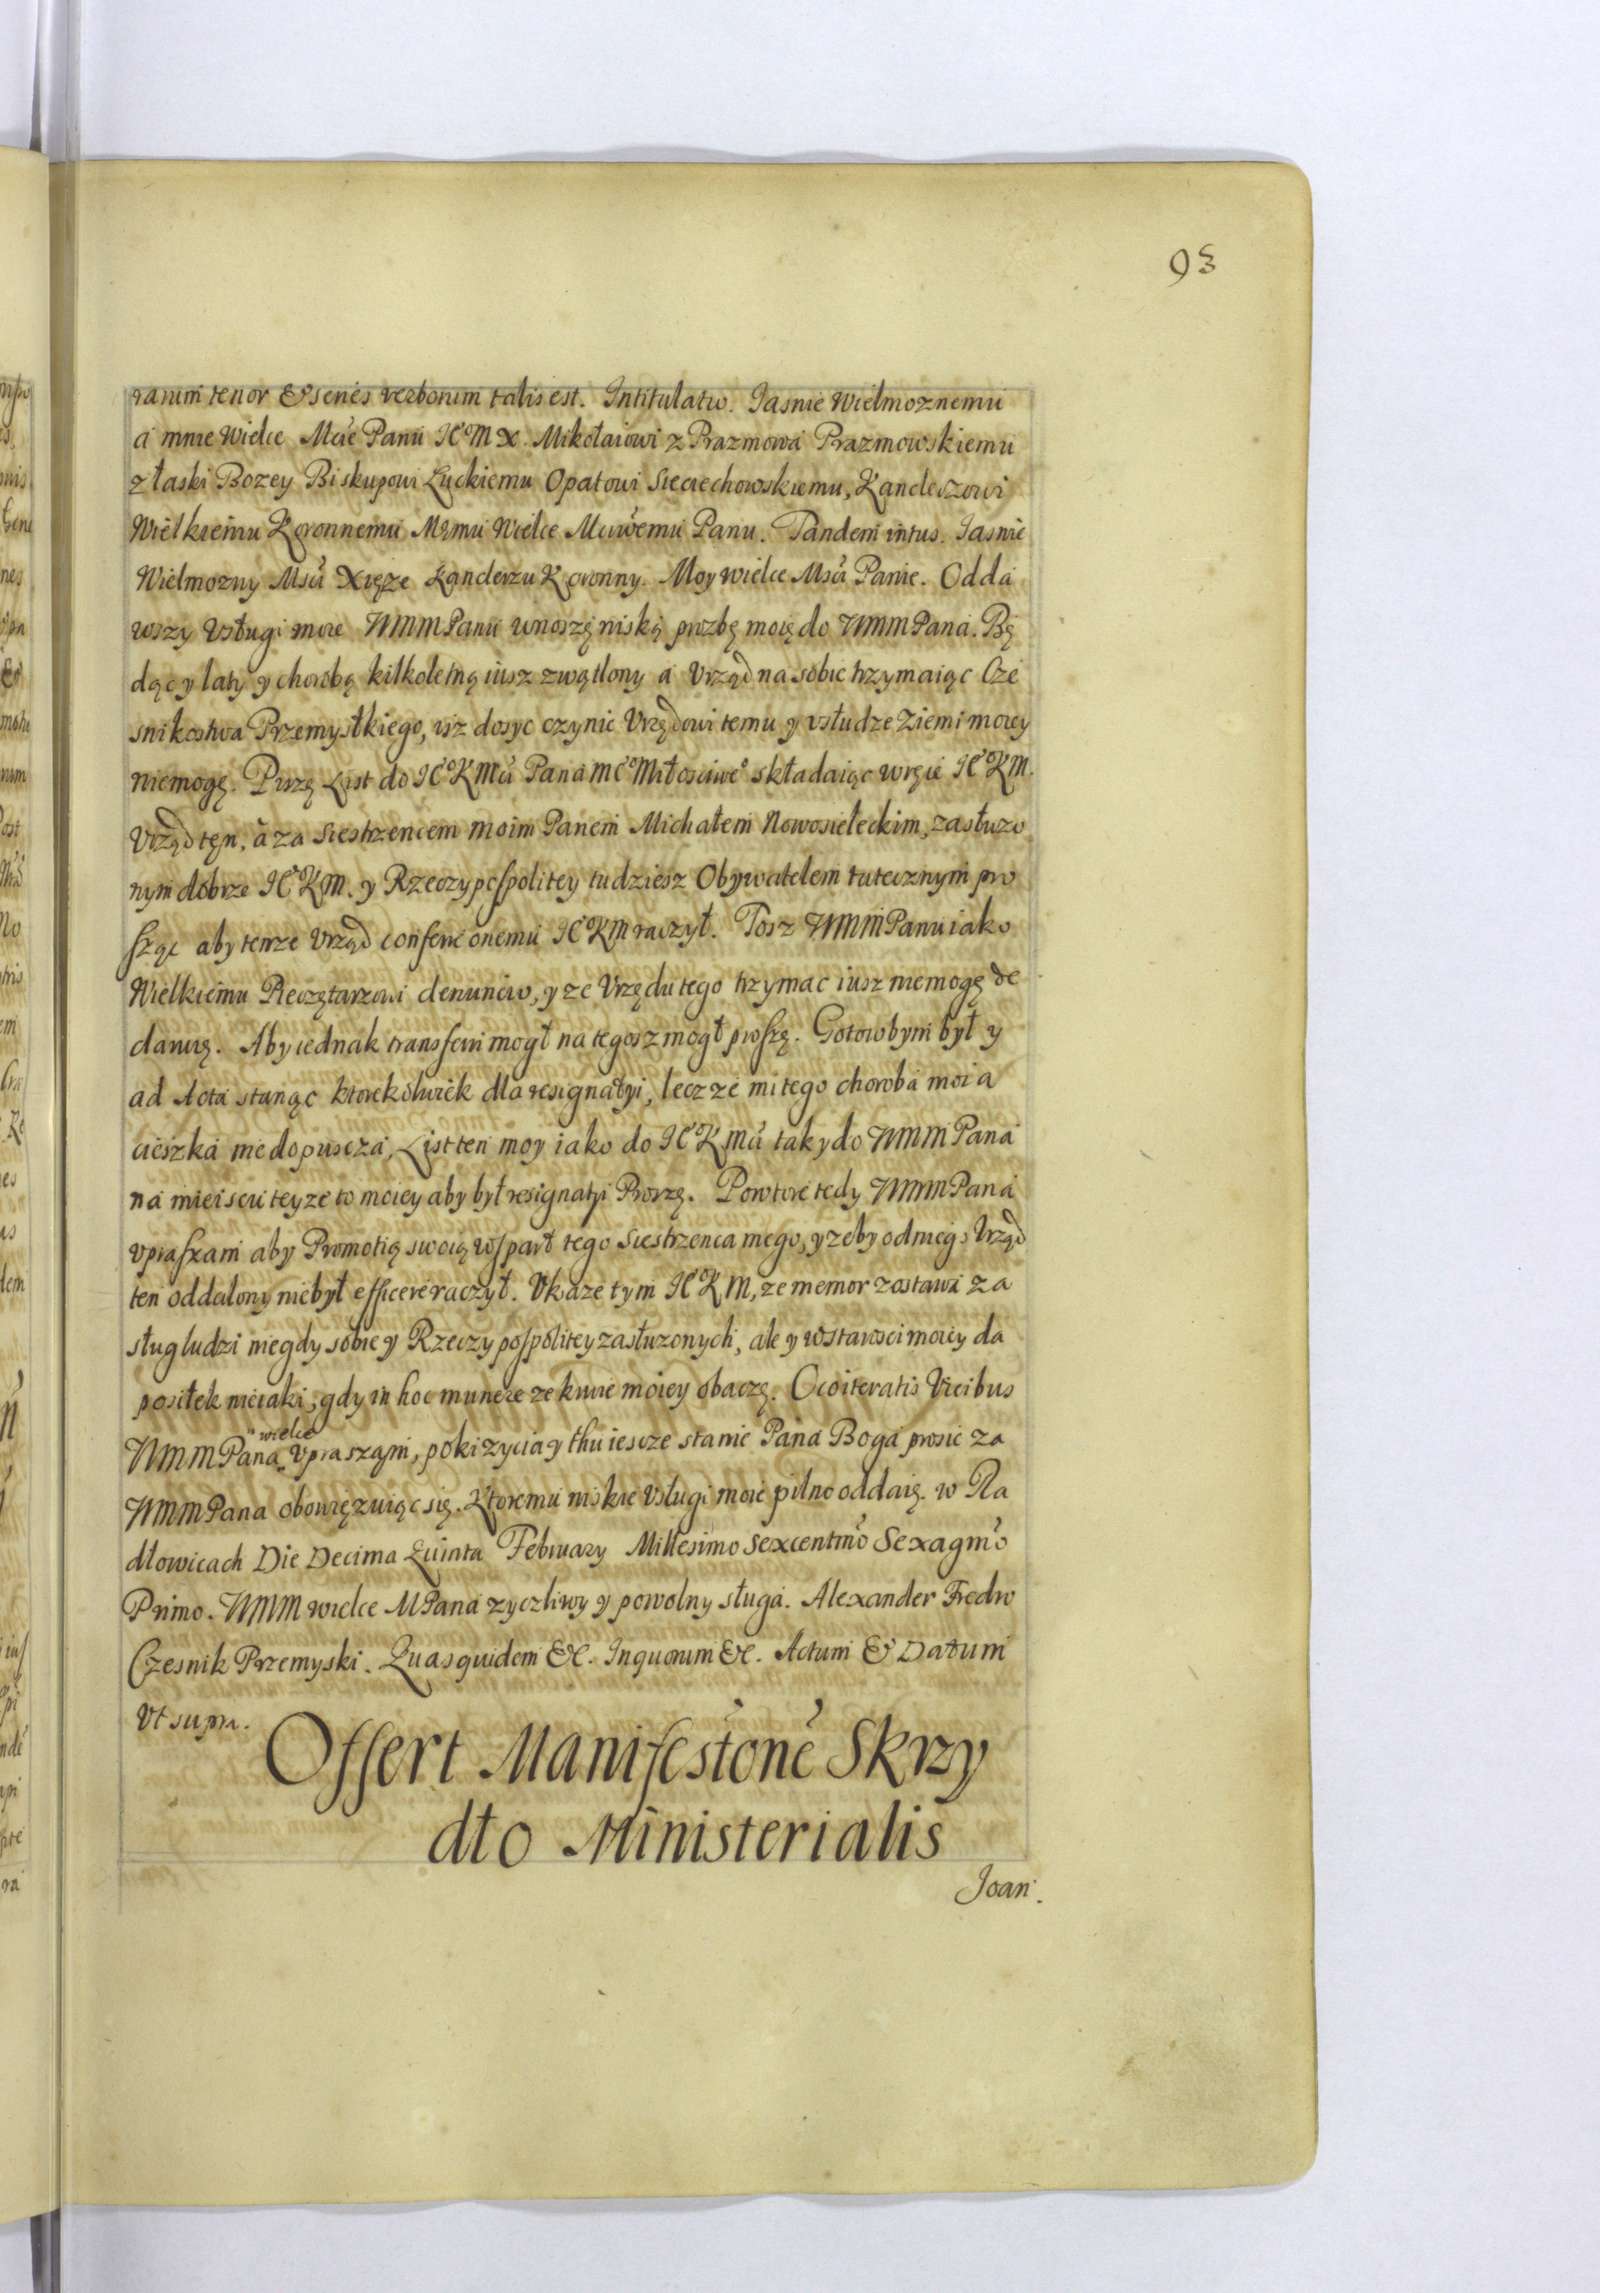 93
rarum tenor & series verborum talis est. Intitulatio. Jasnie Wielmoznemu
a mnie Wielce Mcie Panu JEM X. Mikołaiowi z Prazmowa Prazmowskiemu
z łaski Bozey Biskupowi Łuckiemu Opatowi Sieciechowskiemu, Kanclerzowi
Wielkiemu Koronnemu Memu Wielce Mciwemu Panu. Tandem intus. Jasnie
Wielmozny Msci Xięze Kanclerzu Koronny. Moy wielce Msci Panie. Odda
wszy Usługi moie WMMPanu wnoszę niską prozbę moię do WMMPana. Bę
dąc y laty y chorobą kilkoletną iusz zwątlony a Vrząd na sobie trzymaiąc Cze
snikostwa Przemysłkiego, isz dosyc czynic Vrzędowi temu y vsłudze Ziemi moiey
niemogę. Piszę List do JEo KMci Pana MEo Miłosciweo składaiąc w ręie JEo KM.
Vrząd ten, a za Siestrzencem moim Panem Michałem Nowosieleckim, zasłuzo
nym dobrze JEo KM. y Rzeczypospolitey tudziesz Obywatelem tutecznym pro
sząc aby tenze Vrząd conferre onemu JEo KM raczył. Tosz WMMPanu iako
Wielkiemu Pieczętarzowi denuncio, y ze Vrzędu tego trzymac iusz niemogę de
claruię. Aby iednak transferri mogł na tegosz mogł proszę. Gotowbym był y
ad Acta stanąc ktorekolwiek dla resignatyi, lecz ze mi tego choroba moia
cieszka niedopuscza, List ten moy iako do JEo KMci tak y do WMMPana
na mieiscu teyze to moiey aby był resignatyi Proszę. Powtore tedy WMMPana
vpraszam aby Promotią swoią wsparł tego Siestrzenca mego, y zeby odniego Vrząd
ten oddalony niebył efficere raczył. Vkaze tym JEo KM, ze memor zostawa za
sług ludzi niegdy sobie y Rzeczypospolitey zasłuzonych, ale y w starosci moiey da
posiłek nieiaki, gdy in hoc munere ze krwie moiey obaczę. Ocoiteratis Vicibus
WMMPana wielce Vpraszam, poki zycia y thu iescze stanie Pana Boga prosic za
WMMPana obowięzuiąc się. Ktoremu niskie Vsługi moie pilno oddaię. w Ra
dłowicach Die Decima Quinta February Millesimo Sexcentmo Sexagmo
Primo. WMM wielce MPana zyczliwy y powolny sługa. Alexander Fredro
Czesnik Przemyski. Quasquidem &c. Inquorum &c. Actum & Datum
Vt supra.
Offert Manifestone Skrzy
dło Ministerialis
Joan.